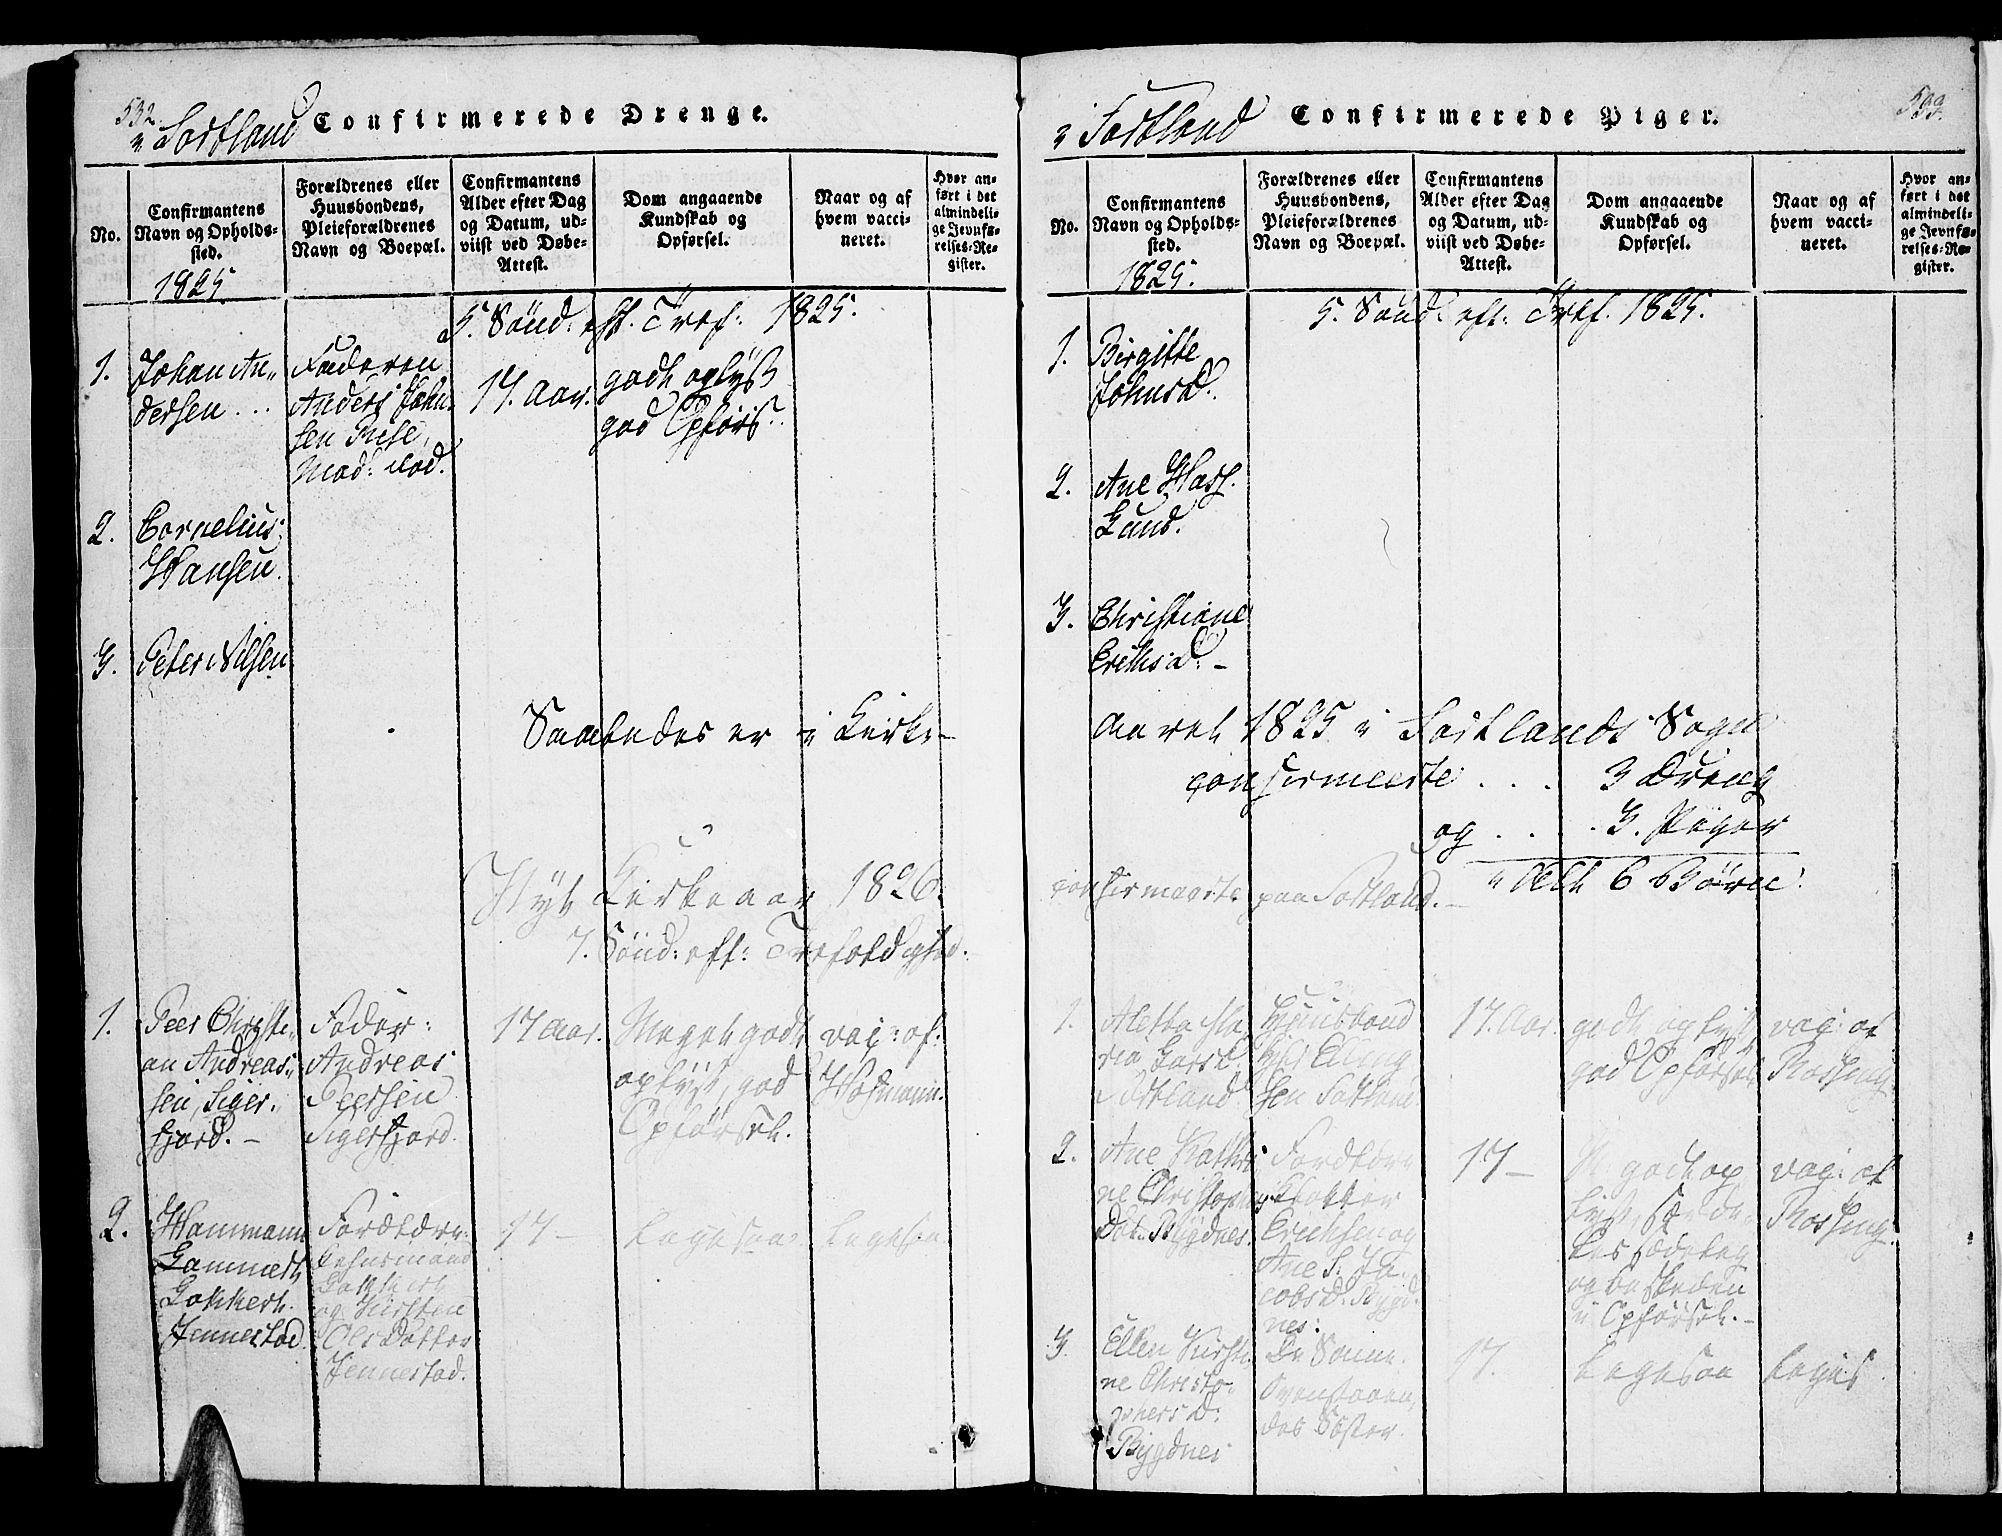 532.
i Sortland Confirmerede Drenge.
No.
Confirmantens
Navn og Opholds-
sted.
1825
Forældrenes eller
Huusbondens,
Pleieforældrenes
Navn og Boepæl.
Confirmantens
Alder efter Dag
og Datum, ud-
viist ved Døbe-
Attest.
Dom angaaende
Kundskab og
Opførsel.
Naar og af
hvem vacci-
neret.
Hvor an-
ført i det
almindeli-
ge Jevnfø-
relses-Re-
gister.
5. Sönd. eft. Tref: 1825.
1.
Johan An-
dersen ...
Faderen
Anders John-
sen
Mod: död.
17. Aar.
godt oplÿst
god Opförs..
2.
Cornelius
Hansen
3.
Peter Nilsen
Saaledes er i Kirke-
Nÿt Kirkeaar 1826.
7. Sönd: eft: Trefoldighed.
1.
Peer Christi-
an Andreas-
sen, Siger-
fjord. -
Fader:
Andreas
Peersen
Sigerfjord.
17 Aar.
Meget godt
oplÿst, god
Opförsel.
vac: af:
Hofmann.
2.
Hammann
Gammeth
Gokkert.
Jennestad.
Forældre:
og Kirsten
Ols Datter
Jennestad.
17 -
Ligesaa
Ligesaa
i Sortland Confirmerede Piger.
533.
No.
Confirmantens
Navn og Opholds-
sted.
1825.
Forældrenes eller
Huusbondens,
Pleieforældrenes
Navn og Boepæl.
Confirmantens
Alder efter Dag
og Datum, ud-
viist ved Døbe-
Attest.
Dom angaaende
Kundskab og
Opførsel.
Naar og af
hvem vacci-
neret.
Hvor an-
ført i det
almindeli-
ge Jevnfø-
relses-Re-
gister.
5. Sönd. eft: Tref. 1825.
1.
Birgitte
Johnsd.
2.
Ane
3.
Christiane
Eriksd: -
Aaret 1825 i Sortlands Sogn
confirmeerte . . . 3 Dreng
og . . . . 3. Piger
i Alt 6 Börn.
confirmeerte paa Sortland. -
1.
Aletha Ma-
ria
Sortland
Huusbond
Elling-
sen Sortland
17. Aar.
godt oplÿst
god Opförsel
vac: af
Rossing
2.
Ane Kathri
ne Christophers
Dat. Bÿgdnes.
Forældre
Erichsen og
Ane S. Ja-
cobsd: Bÿgd-
nes:
17 -
godt op-
lÿst, Sær de-
les sædelig
og beskeden
i Opförsel. -
vac: af
Rossing.
3.
Ellen Kirsti-
ne Christo-
phers D:
Bÿgdnes
De Samme.
Ovenstaaen-
des Söster.
17.
Ligesaa
Liges